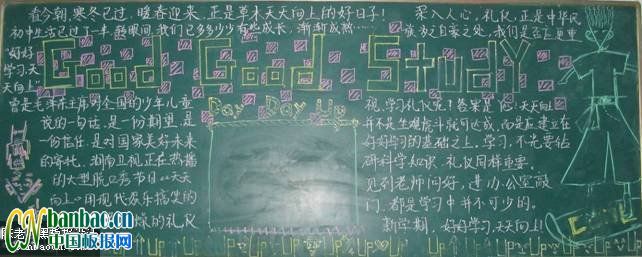 看今朝,寒冬已过,暖春迎来,正是草木天天向上的好日子!
初中生活已过了一半,转眼间,我们已多多少少有些成长,渐渐成熟……
深入人心,礼仪,正是中华民
族为之自豪之处,我们是否上更重
Good Good Study
Day Day Up
“好好
学习,天
天向上”
曾是毛泽东主席对全国的少年儿童
说的一句话,是一份期望,是
一份信任,是对国家美好未来
的寄托,湖南卫视正在热播
的大型脱口秀节目《天天
向上》用现代娱乐搞笑的
的礼仪
视,学习礼仪呢!答案是
天天向上
并不是坐观虎斗就可达成,而是应建立在
好好学习的基础之上,学习,不光要钻
研科学知识,礼仪同样重要。
见到老师问好,进办公室敲
门,都是学习中并不可少的。
新学期,好好学习,天天向上!
UP UP UP UP UP UP UP
banbao.cn
中国板报网